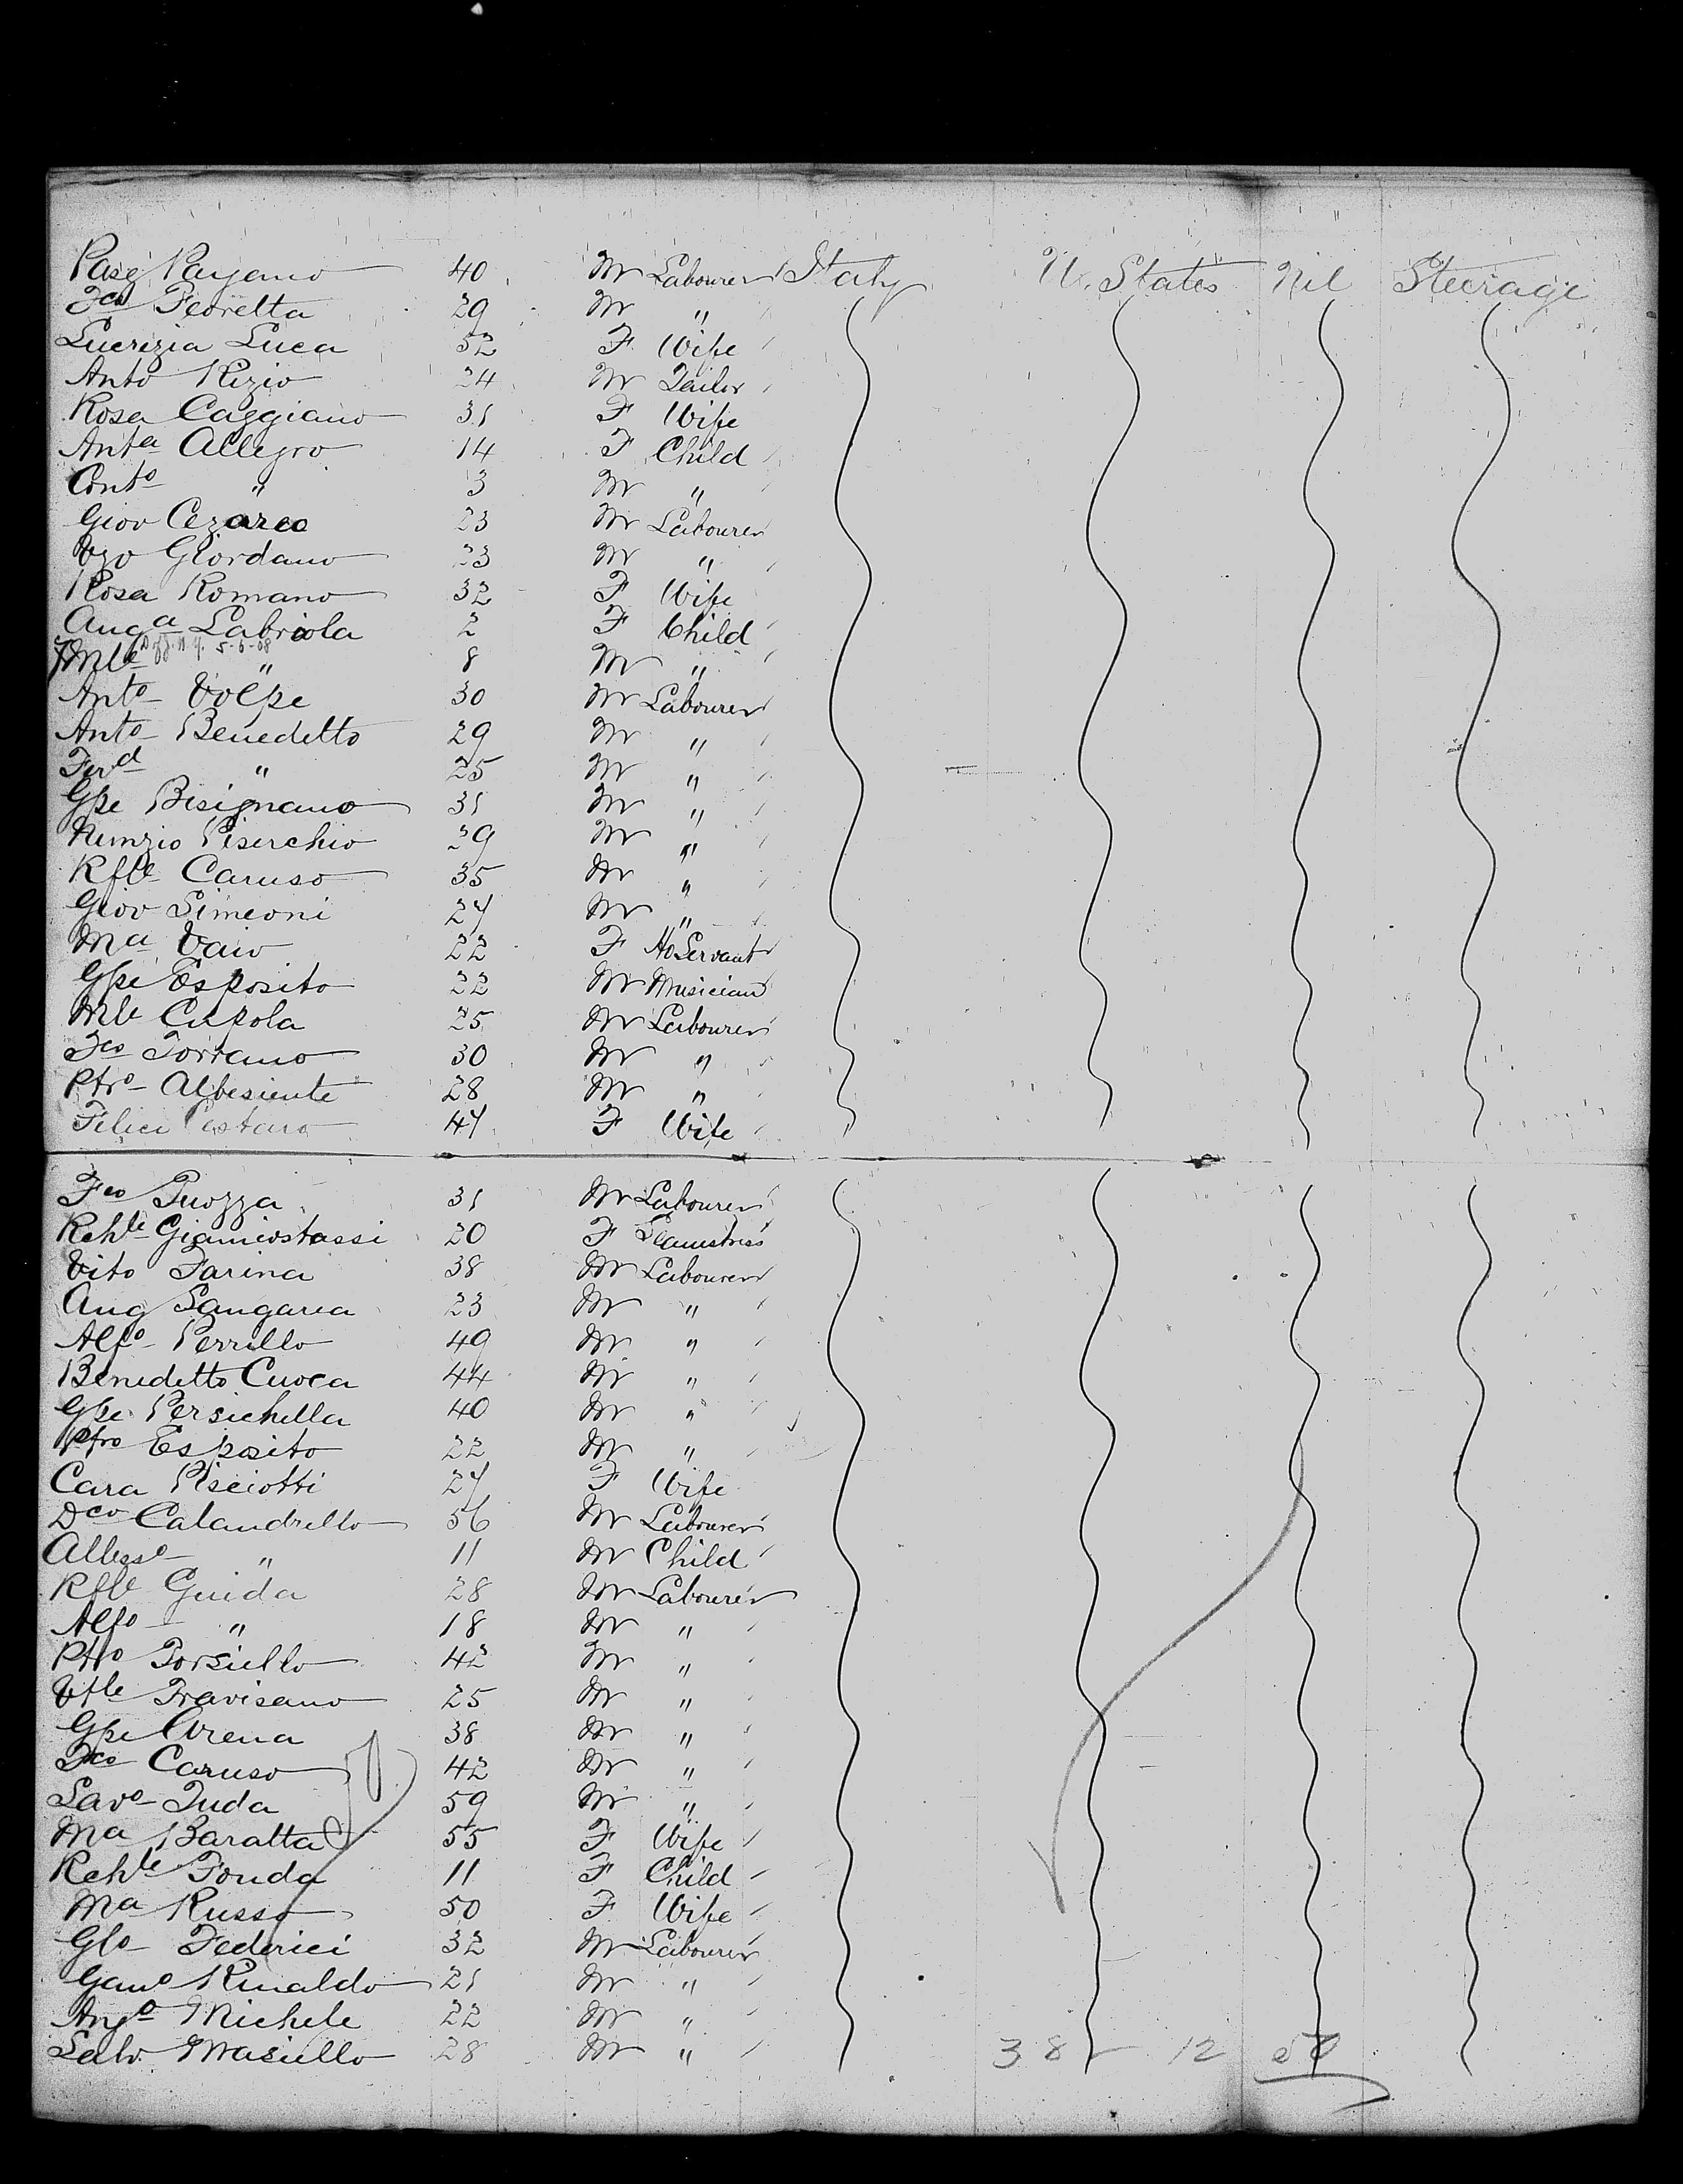 Pasq Pagano 40 M Labourer Italy U. States Nil Steerage
Fco Fioretta 29 M "
Lucrizia Luca 52 F Wife
Anto Rizio 24 M Tailor
Rosa Caggiano 31 F Wife
Anta Allegro 14 F Child
Conto " 3 M "
Giov Cezareo 23 M Labourer
Vzo Giordano 23 M "
Rosa Romano 32 F Wife
Anga Labriola 2 F Child
Mle " 8 M "
Anto Volpe 30 M Labourer
Anto Benedetto 29 M "
Ferd " 25 M "
Gpe Bisignano 31 M "
Nunzio Piserchio 29 M "
Rfle Caruso 35 M "
Giov Simeoni 27 M "
Ma Vaio 22 F Ho Servant
Gpe Esposito 22 M Musician
Mle Cupola 25 M Labourer
Fco Torrano 30 M "
Ptro Albesiente 28 M "
Felici Castaro 47 F Wife
Fco Puozza 31 M Labourer
Rchle Gianicostassi 20 F Seamstress
Vito Farina 38 M Labourer
Ang Sangarea 23 M "
Alfo Perrillo 49 M "
Benedetto Cuoca 44 M "
Gpe Persichella 40 M "
Ptro Esposito 22 M "
Cara Pisciotti 27 F Wife
Dco Calandrello 56 M Labourer
Alesso " 11 M Child
Rfle Guida 28 M Labourer
Alfo " 18 M "
Ptro Torsiello 42 M "
Vtle Travisano 25 M "
Gpe Arena 38 M "
Fco Caruso 42 M "
Savo Tuda 59 M "
Ma Baratta 55 F Wife
Rchle Fonda 11 F Child
Ma Russo 50 F Wife
Glo Federici 32 M Labourer
Gano Rinaldo 21 M "
Ango Michele 22 M "
Salv Masiello 28 M " 38 12 50